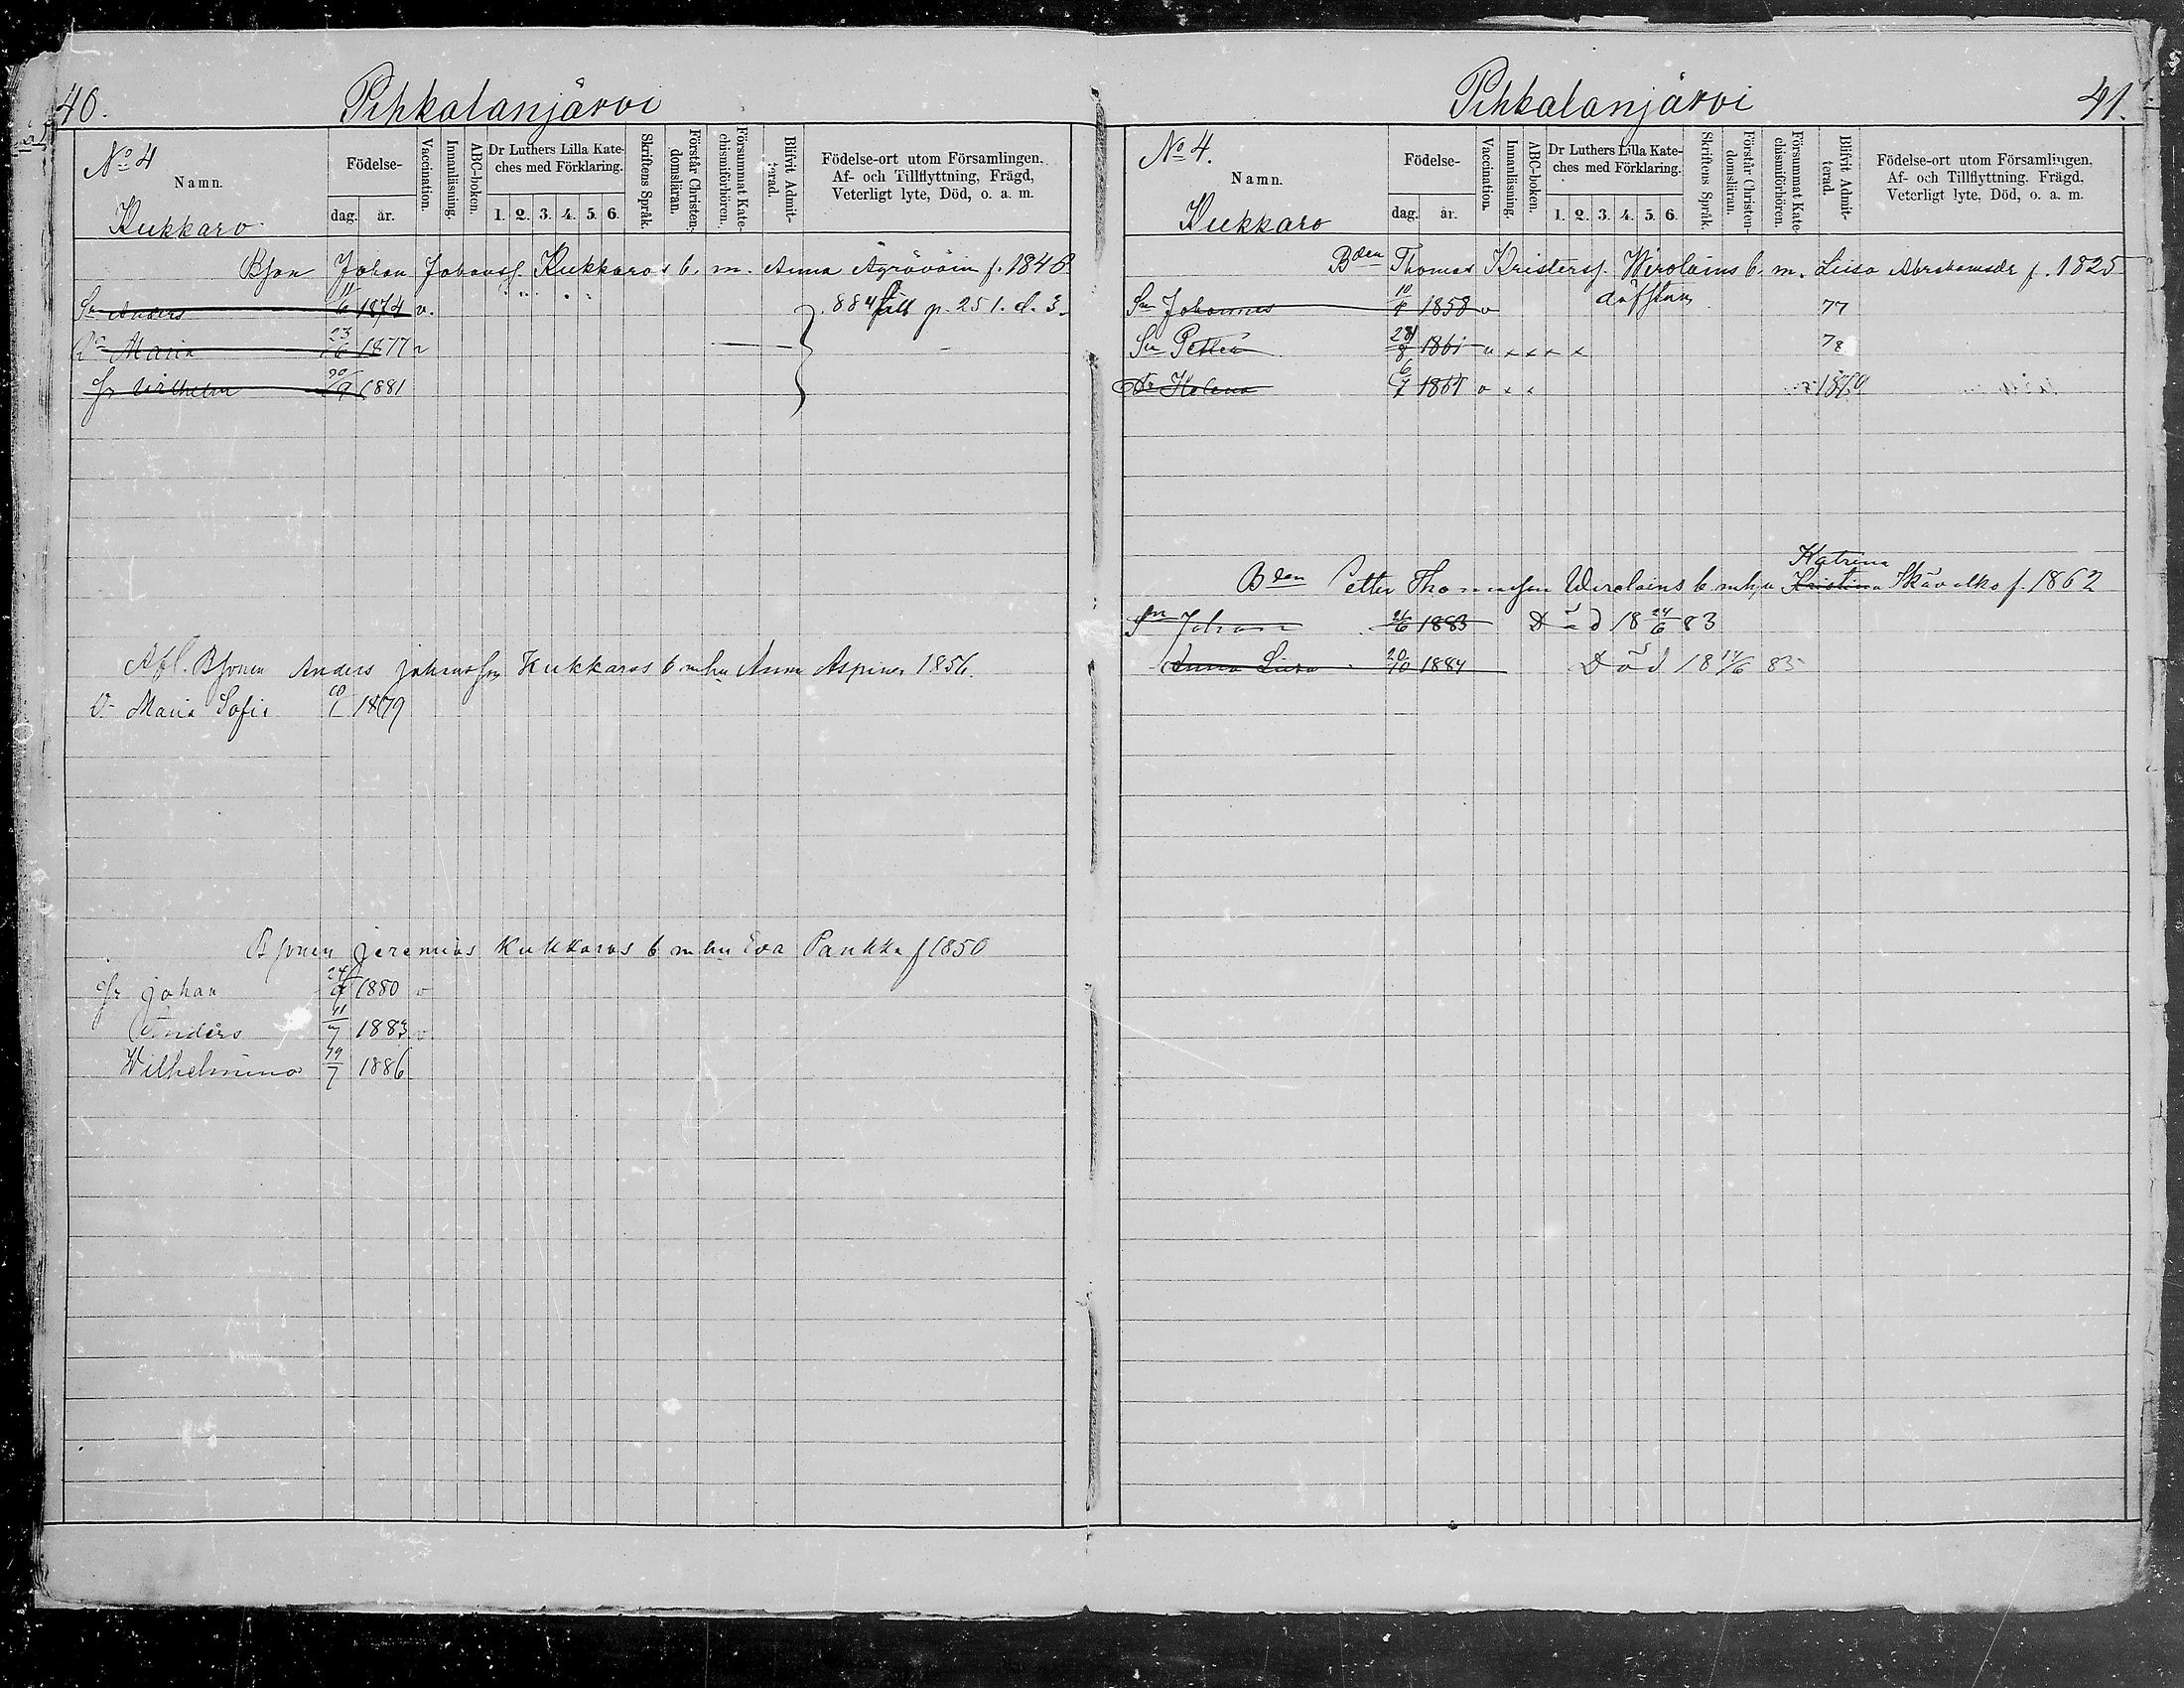 40.
Pihkalanjärvi
No 4
Namn.
Kukkaro
Födelse-
dag. år.
Vaccination.
Innanläsning.
ABC-boken.
Dr Luthers Lilla Kate-
ches med Förklaring.
1. 2. 3. 4. 5. 6.
Skriftens Språk.
Förstår Christen-
domsläran.
Försummat Kate-
chismiförhören.
Blifvit Admit-
terad.
Födelse-ort utom Församlingen.
Af- och Tillflyttning, Frägd,
Veterligt lyte, Död, o. a. m.
Bson Johan Johanss. Kukkaros b. m. Anna Ägräväin f. 1848
Sn Anders 11/6 1874 v. 884 fält p. 251. d. 3.
Dr Maria 23/6 1877 v
Sn Wilhelm 30/9 1881
Afl. Bsonen Anders Johansson Kukkaros b m hu Anna Aspinen 1856.
D. Maria Sofia 10/1 1879
Bsonen Jeremias Kukkaros b m hu Eva Paukku f 1850
Sn Johan 24/9 1880 v
Anders 11/7 1883 v
Wilhelmina 19/7 1886
Pihkalanjärvi
41.
No 4.
Namn.
Kukkaro
Födelse-
dag. år.
Vaccination.
Innanläsning.
ABC-boken.
Dr Luthers Lilla Kate-
ches med Förklaring.
1. 2. 3. 4. 5. 6.
Skriftens Språk.
Förstår Christen-
domsläran.
Försummat Kate-
chismiförhören.
Blifvit Admit-
terad.
Födelse-ort utom Församlingen.
Af- och Tillflyttning. Frägd.
Veterligt lyte, Död, o. a. m.
Bden Thomas Kristerss. Wirolains b. m. Liisa Abrahamsdr f. 1825
Sn Johannes 10/4 1858 v döfstum 77
Sn Petter 28/8 1861 v x x x x 78
Dr Helena 6/7 1864 v x x 1879
Katrina
Bden Petter Thomasson Wirolains b m hu Kristina Skävelko f. 1862
Sn Johan 21/6 1883 Död 18 24/6 83
Anna Liisa 20/10 1884 Död 18 14/6 85